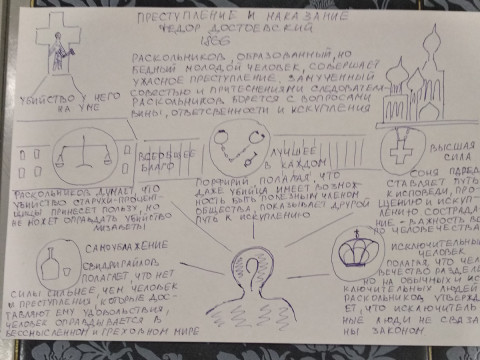 ПРЕСТУПЛЕНИЕ И НАКАЗАНИЕ
ФЕДОР ДОСТОЕВСКИЙ
1866
РАСКОЛЬНИКОВ, ОБРАЗОВАННЫЙ, НО
БЕДНЫЙ МОЛОДОЙ ЧЕЛОВЕК, СОВЕРШАЕТ
УЖАСНОЕ ПРЕСТУПЛЕНИЕ, ЗАМУЧЕННЫЙ
СОВЕСТЬЮ И ПРИТЕСНЕНИЯМИ СЛЕДОВАТЕЛЯ
РАСКОЛЬНИКОВ БОРЕТСЯ С ВОПРОСАМИ
ВИНЫ, ОТВЕТСВЕННОСТИ И ИСКУПЛЕНИЯ
УБИЙСТВО У НЕГО
НА УМЕ
ВСЕОБЩЕЕ
БЛАГО
РАСКОЛЬНИКОВ ДУМАЕТ, ЧТО
УБИЙСТВО СТАРУХИ-ПРОЦЕН-
ЩИЦЫ ПРИНЕСЕТ ПОЛЬЗУ, НО
НЕ МОЖЕТ ОПРАВДАТЬ УБИЙСТВО
ЛИЗАВЕТЫ
ЛУЧШЕЕ
В КАЖДОМ
ПОРФИРИЙ ПОЛАГАЯ, ЧТО
ДАЖЕ УБИЙЦА ИМЕЕТ ВОЗМОЖ-
НОСТЬ БЫТЬ ПОЛЕЗНЫМ ЧЛЕНОМ
ОБЩЕСТВА, ПОКАЗЫВАЕТ ДРУГОЙ
ПУТЬ К ИСКУПЛЕНИЮ
ВЫСШАЯ
СИЛА
СОНЯ
СТАВЛЯЕТ ПУТЬ
К ИСПОВЕДИ, ПРО-
ЩЕНИЮ И ИСКУП-
ЛЕНИЮ СОСТРАДА-
НИЕ - ВАЖНОСТЬ
ЧЕЛОВЕЧЕСТВА
САМОУВАЖЕНИЕ
СВИДРИГАЙЛОВ
ПОЛАГАЕТ, ЧТО НЕТ
СИЛЫ СИЛЬНЕЕ, ЧЕМ ЧЕЛОВЕК
И ПРЕСТУПЛЕНИЯ, КОТОРЫЕ ДОС-
ТАВЛЯЮТ ЕМУ УДОВОЛЬСТВИЯ,
ЧЕЛОВЕК ОПРАВДЫВАЕТСЯ В
БЕССМЫСЛЕННОМ И ГРЕХОВНОМ МИРЕ
ИСКЛЮЧИТЕЛЬНЫЙ
ЧЕЛОВЕК
ПОЛАГАЯ, ЧТО ЧЕЛО-
ВЕЧЕСТВО РАЗДЕЛЕ-
НО НА ОБЫЧНЫХ И ИС-
КЛЮЧИТЕЛЬНЫХ ЛЮДЕЙ
РАСКОЛЬНИКОВ УТВЕРЖДА-
ЕТ, ЧТО ИСКЛЮЧИТЕЛЬ-
НЫЕ ЛЮДИ НЕ СВЯЗА-
НЫ ЗАКОНОМ